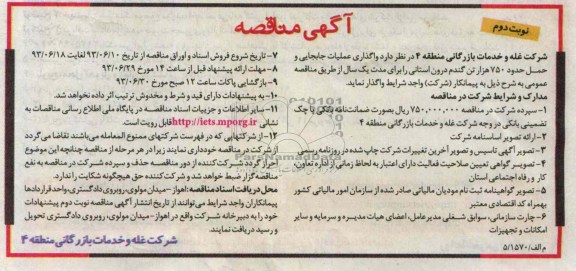 آگهی مناقصه
نوبت دوم
شرکت غله و خدمات بازرگانی منطقه ۴ در نظر دارد واگذاری عملیات جابجایی و
حمل حدود ۷۵۰ هزار تن گندم درون استانی را برای مدت یک سال از طریق مناقصه
عمومی به شرح ذیل به پیمانکار (شرکت) واجد شرایط واگذار نماید.
مدارک و شرایط شرکت در مناقصه
۱- سپرده شرکت در مناقصه ۷۵۰,۰۰۰,۰۰۰ ریال بصورت ضمانتنامه بانکی یا چک
تضمینی بانکی در وجه شرکت غله و خدمات بازرگانی منطقه ۴
۲- ارائه تصویر اساسنامه شرکت
۳- تصویر آگهی تاسیس و تصویر آخرین تغییرات شرکت چاپ شده در روزنامه رسمی
۴- تصویر گواهی تعیین صلاحیت فعالیت دارای اعتبار به لحاظ زمانی از اداره تعاون،
کار و رفاه اجتماعی استان
۵- تصویر گواهینامه ثبت نام مودیان مالیاتی صادر شده از سازمان امور مالیاتی کشور
بهمراه کد اقتصادی معتبر
۶- چارت سازمانی، سوابق شغلی مدیرعامل، اعضای هیات مدیره و سرمایه و سایر
امکانات و تجهیزات
م الف/۵/۱۵۷۰
۷- تاریخ شروع فروش اسناد و اوراق مناقصه از تاریخ ۹۳/۰۶/۱۰ لغایت ۹۳/۰۶/۱۸
۸- مهلت ارائه پیشنهاد قبل از ساعت ۱۴ مورخ ۹۳/۰۶/۲۹
۹- بازگشایی پاکات ساعت ۱۲ صبح مورخ ۹۳/۰۶/۳۰
۱۰- به پیشنهادات دارای قید و شرط و مخدوش ترتیب اثر داده نخواهد شد.
۱۱- سایر اطلاعات و جزییات اسناد مناقصه در پایگاه ملی اطلاع رسانی مناقصات به
نشانی http://iets.mporg.ir قابل رویت است.
۱۲- از شرکتهایی که در فهرست شرکتهای ممنوع المعامله می‌باشند تقاضا می‌گردد
از شرکت در مناقصه خودداری نمایند زیرا در هر مرحله از مناقصه چنانچه این موضوع
احراز گردد شرکت کننده از دور مناقصه حذف و سپرده شرکت در مناقصه به نفع
مناقصه گزار ضبط خواهد شد و شرکت کننده حق هیچگونه شکایت را ندارد.
محل دریافت اسناد مناقصه: اهواز - میدان مولوی، روبروی دادگستری، واحد قراردادها
پیمانکاران واجد شرایط می‌توانند از تاریخ انتشار آگهی مناقصه نوبت دوم پیشنهادات
خود را به دبیرخانه شرکت واقع در اهواز - میدان مولوی، روبروی دادگستری تحویل
و رسید دریافت نمایند.
شرکت غله و خدمات بازرگانی منطقه ۴